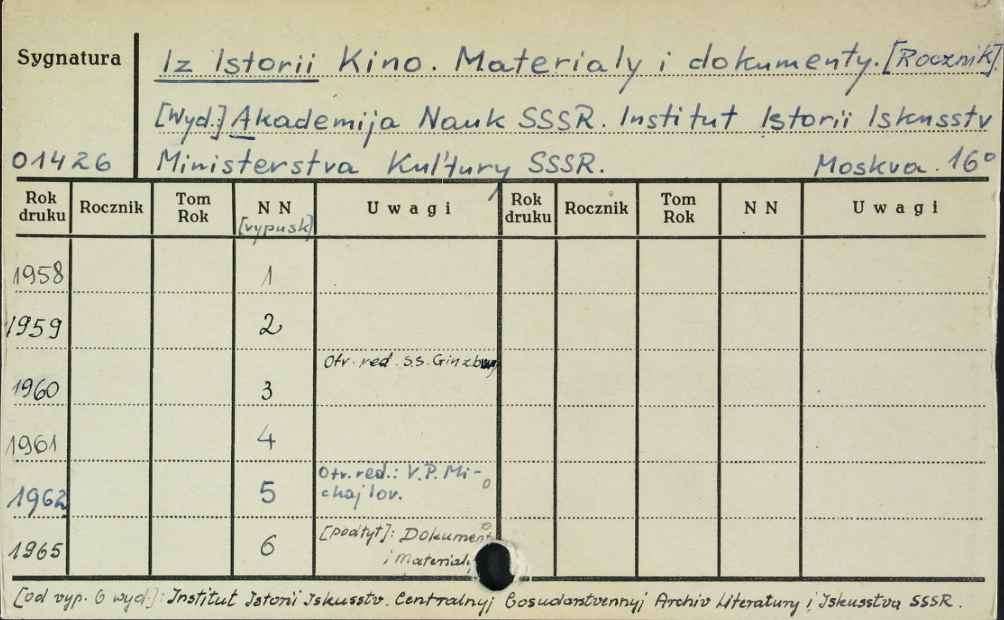 Sygnatura
Iz Istorii Kino. Materialy i dokumenty. [Rocznik].
[Wyd.] Akademija Nauk SSSR. Institut Istorii Iskusstv
01426 Ministerstva Kul'tury SSSR. Moskva. 16°
Rok druku Rocznik Tom Rok NN [vypusk] Uwagi Rok druku Rocznik Tom Rok NN Uwagi
1958 1
1959 2
Otv. red. S.S. Ginzburg
1960 3
1961 4
Otv. red.: V.P. Mi-
1962 5 chajlov.
[podtyt]: Dokumenty
1965 6 i Materialy
[od vyp. 6 wyd.]: Institut Istorii Iskusstv. Centralnyj Gosudarstvennyj Archiv Literatury i Iskusstva SSSR.